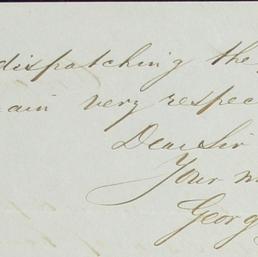 dispatching the
ain very respec
Dear Sir
Your m
Georg